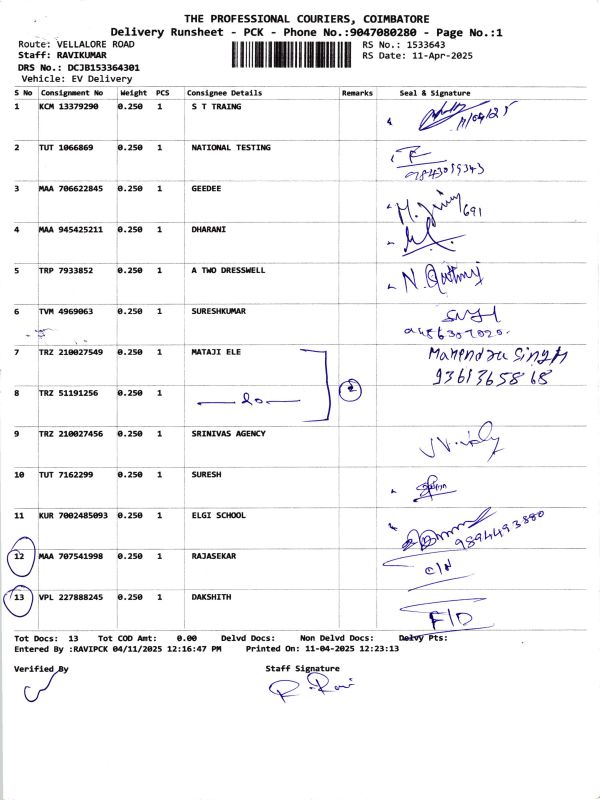 THE PROFESSIONAL COURIERS, COIMBATORE
Delivery Runsheet - PCK - Phone No.:9047080280 - Page No.:1
Route: VELLALORE ROAD RS No.: 1533643
Staff: RAVIKUMAR RS Date: 11-Apr-2025
DRS No.: DCJB153364301
Vehicle: EV Delivery
S No Consignment No Weight PCS Consignee Details Remarks Seal & Signature
1 KCM 13379290 0.250 1 S T TRAING 11/04/25
2 TUT 1066869 0.250 1 NATIONAL TESTING
9843039343
3 MAA 706622845 0.250 1 GEEDEE
691
4 MAA 945425211 0.250 1 DHARANI
5 TRP 7933852 0.250 1 A TWO DRESSWELL
6 TVM 4969063 0.250 1 SURESHKUMAR
9486307020.
7 TRZ 210027549 0.250 1 MATAJI ELE Mahendra Singh
9361365868
8 TRZ 51191256 0.250 1 do 2
9 TRZ 210027456 0.250 1 SRINIVAS AGENCY
10 TUT 7162299 0.250 1 SURESH
11 KUR 7002485093 0.250 1 ELGI SCHOOL
9894493880
12 MAA 707541998 0.250 1 RAJASEKAR C/N
13 VPL 227888245 0.250 1 DAKSHITH F/D
Tot Docs: 13 Tot COD Amt: 0.00 Delvd Docs: Non Delvd Docs: Delvy Pts:
Entered By :RAVIPCK 04/11/2025 12:16:47 PM Printed On: 11-04-2025 12:23:13
Verified By Staff Signature
R. Ravi